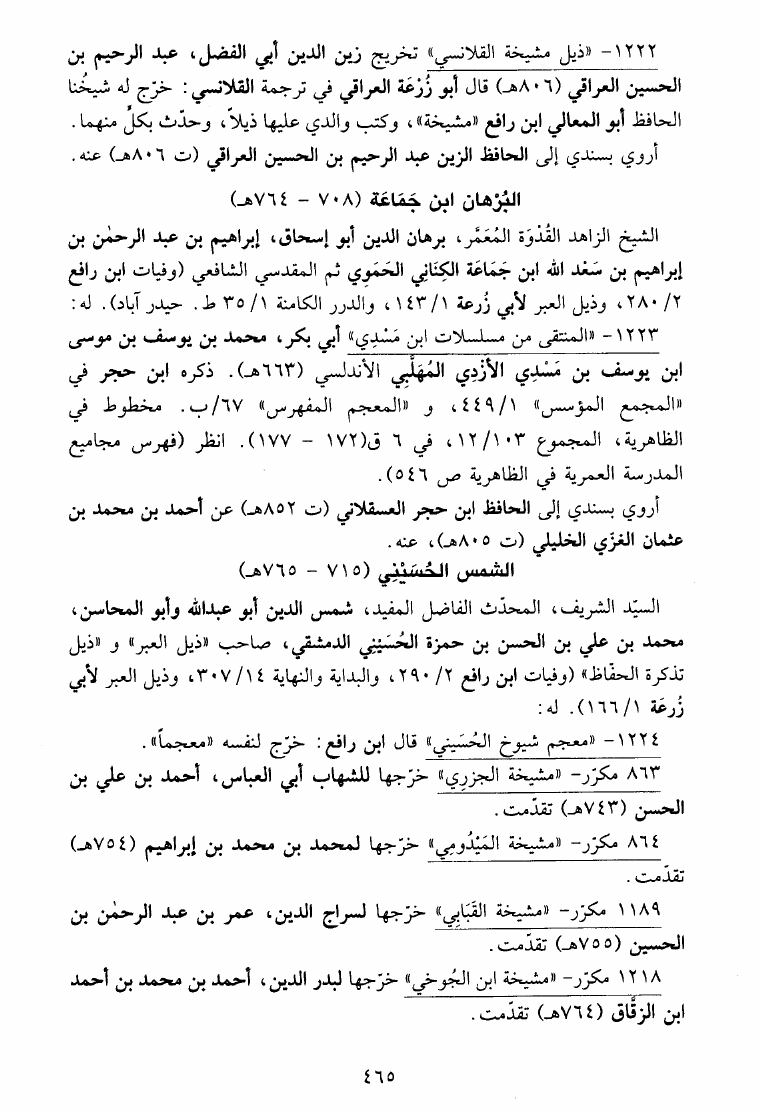 ١٢٢٢- «ذيل مشيخة القلانسي» تخريج زين الدين أبي الفضل، عبد الرحيم بن
الحسين العراقي (٨٠٦هـ) قال أبو زُرْعَة العراقي في ترجمة القلانسي: خرّج له شيخُنا
الحافظ أبو المعالي ابن رافع «مشيخة»، وكتب والدي عليها ذيلاً، وحدّث بكلٍّ منهما.
أروي بسندي إلى الحافظ الزين عبد الرحيم بن الحسين العراقي (ت ٨٠٦هـ) عنه.
البُرْهان ابن جَمَاعَة (٧٠٨ - ٧٦٤هـ)
الشيخ الزاهد القُدْوَة المُعَمَّر، برهان الدين أبو إسحاق، إبراهيم بن عبد الرحمٰن بن
إبراهيم بن سَعْد الله ابن جَمَاعَة الكِنَاني الحَمَوي ثم المقدسي الشافعي (وفيات ابن رافع
٢/ ٢٨٠، وذيل العبر لأبي زُرعة ١/ ١٤٣، والدرر الكامنة ١/ ٣٥ ط. حيدر آباد). له:
١٢٢٣- «المنتقى من مسلسلات ابن مَسْدِي» أبي بكر، محمد بن يوسف بن موسى
ابن يوسف بن مَسْدِي الأَزْدِي المُهَلَّبِي الأندلسي (٦٦٣هـ). ذكره ابن حجر في
«المجمع المؤسس» ١/ ٤٤٩، و «المعجم المفهرس» ٦٧/ب. مخطوط في
الظاهرية، المجموع ١٢/١٠٣، في ٦ ق(١٧٢ - ١٧٧). انظر (فهرس مجاميع
المدرسة العمرية في الظاهرية ص ٥٤٦).
أروي بسندي إلى الحافظ ابن حجر العسقلاني (ت ٨٥٢هـ) عن أحمد بن محمد بن
عثمان الغزّي الخليلي (ت ٨٠٥هـ)، عنه.
الشمس الحُسَيْنِي (٧١٥ - ٧٦٥هـ)
السيّد الشريف، المحدّث الفاضل المفيد، شمس الدين أبو عبدالله وأبو المحاسن،
محمد بن علي بن الحسن بن حمزة الحُسَيْنِي الدمشقي، صاحب «ذيل العبر» و «ذيل
تذكرة الحفّاظ» (وفيات ابن رافع ٢/ ٢٩٠، والبداية والنهاية ١٤/ ٣٠٧، وذيل العبر لأبي
زُرعَة ١/ ١٦٦). له:
١٢٢٤- «معجم شيوخ الحُسَيني» قال ابن رافع: خرّج لنفسه «معجماً».
٨٦٣ مكرّر- «مشيخة الجزري» خرّجها للشهاب أبي العباس، أحمد بن علي بن
الحسن (٧٤٣هـ) تقدّمت.
٨٦٤ مكرّر- «مشيخة المَيْدُومِي» خرّجها لمحمد بن محمد بن إبراهيم (٧٥٤هـ)
تقدّمت.
١١٨٩ مكرّر- «مشيخة القَبَابِي» خرّجها لسراج الدين، عمر بن عبد الرحمٰن بن
الحسين (٧٥٥هـ) تقدّمت.
١٢١٨ مكرّر- «مشيخة ابن الجُوخي» خرّجها لبدر الدين، أحمد بن محمد بن أحمد
ابن الزقّاق (٧٦٤هـ) تقدّمت.
٤٦٥